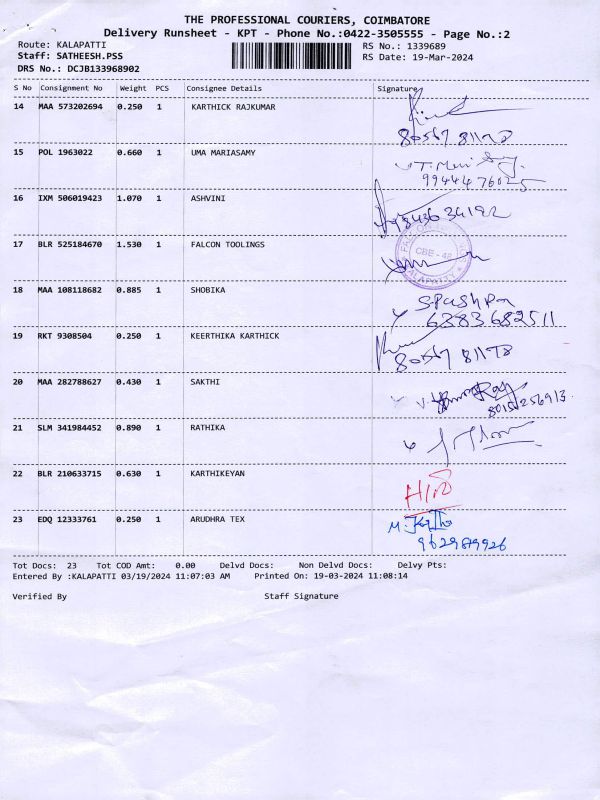 THE PROFESSIONAL COURIERS, COIMBATORE
Delivery Runsheet - KPT - Phone No.:0422-3505555 - Page No.:2
Route: KALAPATTI RS No.: 1339689
Staff: SATHEESH.PSS RS Date: 19-Mar-2024
DRS No.: DCJB133968902
S No Consignment No Weight PCS Consignee Details Signature
14 MAA 573202694 0.250 1 KARTHICK RAJKUMAR
80567 81178
15 POL 1963022 0.660 1 UMA MARIASAMY
99444 76025
16 IXM 506019423 1.070 1 ASHVINI
17 BLR 525184670 1.530 1 FALCON TOOLINGS
CBE - 48
KALAPATTY
18 MAA 108118682 0.885 1 SHOBIKA
S.Pushpa
6383682511
19 RKT 9308504 0.250 1 KEERTHIKA KARTHICK
80567 81178
20 MAA 282788627 0.430 1 SAKTHI
8015256913
21 SLM 341984452 0.890 1 RATHIKA
22 BLR 210633715 0.630 1 KARTHIKEYAN
23 EDQ 12333761 0.250 1 ARUDHRA TEX
Tot Docs: 23 Tot COD Amt: 0.00 Delvd Docs: Non Delvd Docs: Delvy Pts:
Entered By :KALAPATTI 03/19/2024 11:07:03 AM Printed On: 19-03-2024 11:08:14
Verified By Staff Signature